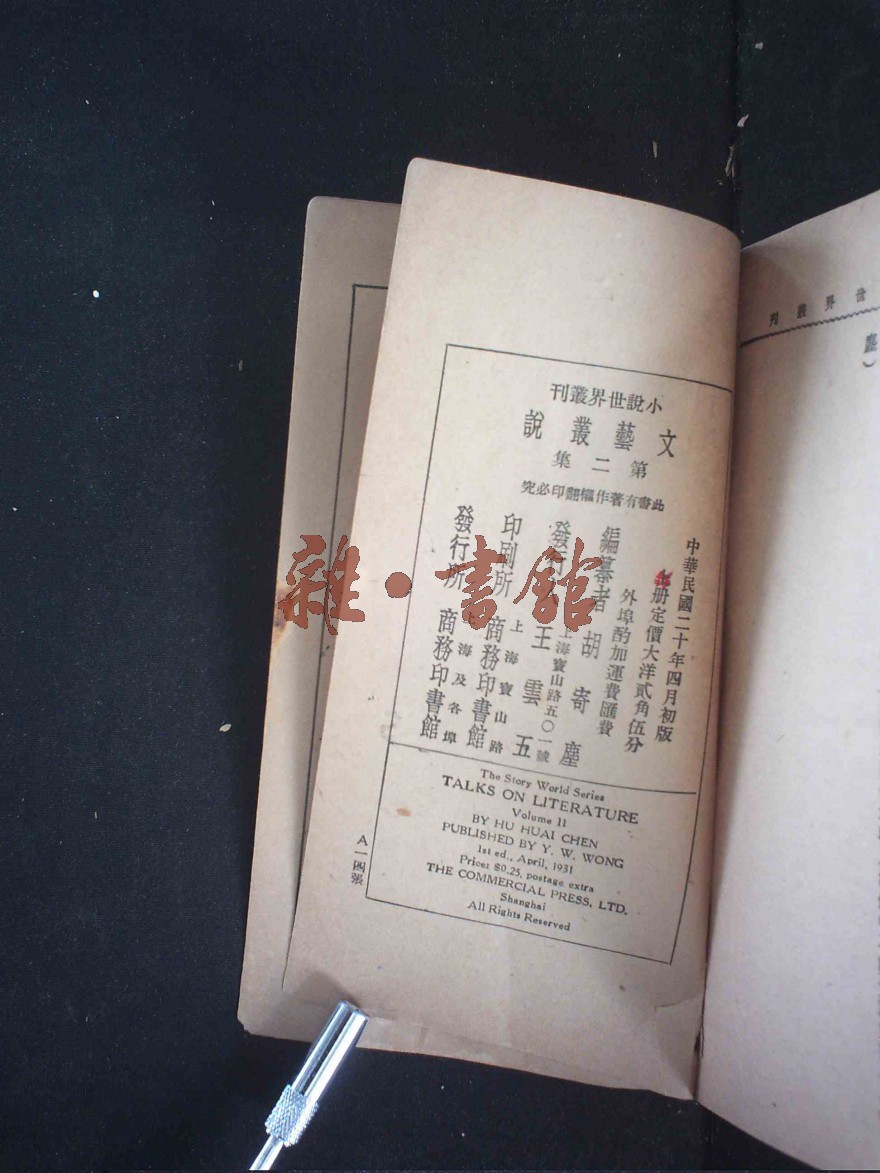 世界叢刊
塵）
中華民國二十年四月初版
小說世界叢刊
文藝叢說
第二集
此書有著作權翻印必究
每冊定價大洋貳角伍分
外埠酌加運費匯費
編纂者 胡寄塵
上海寶山路五〇一號
發行人 王雲五
上海寶山路
印刷所 商務印書館
上海及各埠
發行所 商務印書館
The Story World Series
TALKS ON LITERATURE
Volume II
BY HU HUAI CHEN
PUBLISHED BY Y. W. WONG
1st ed., April, 1931
Price: $0.25, postage extra
THE COMMERCIAL PRESS, LTD.
Shanghai
All Rights Reserved
A一四張
雜·書館